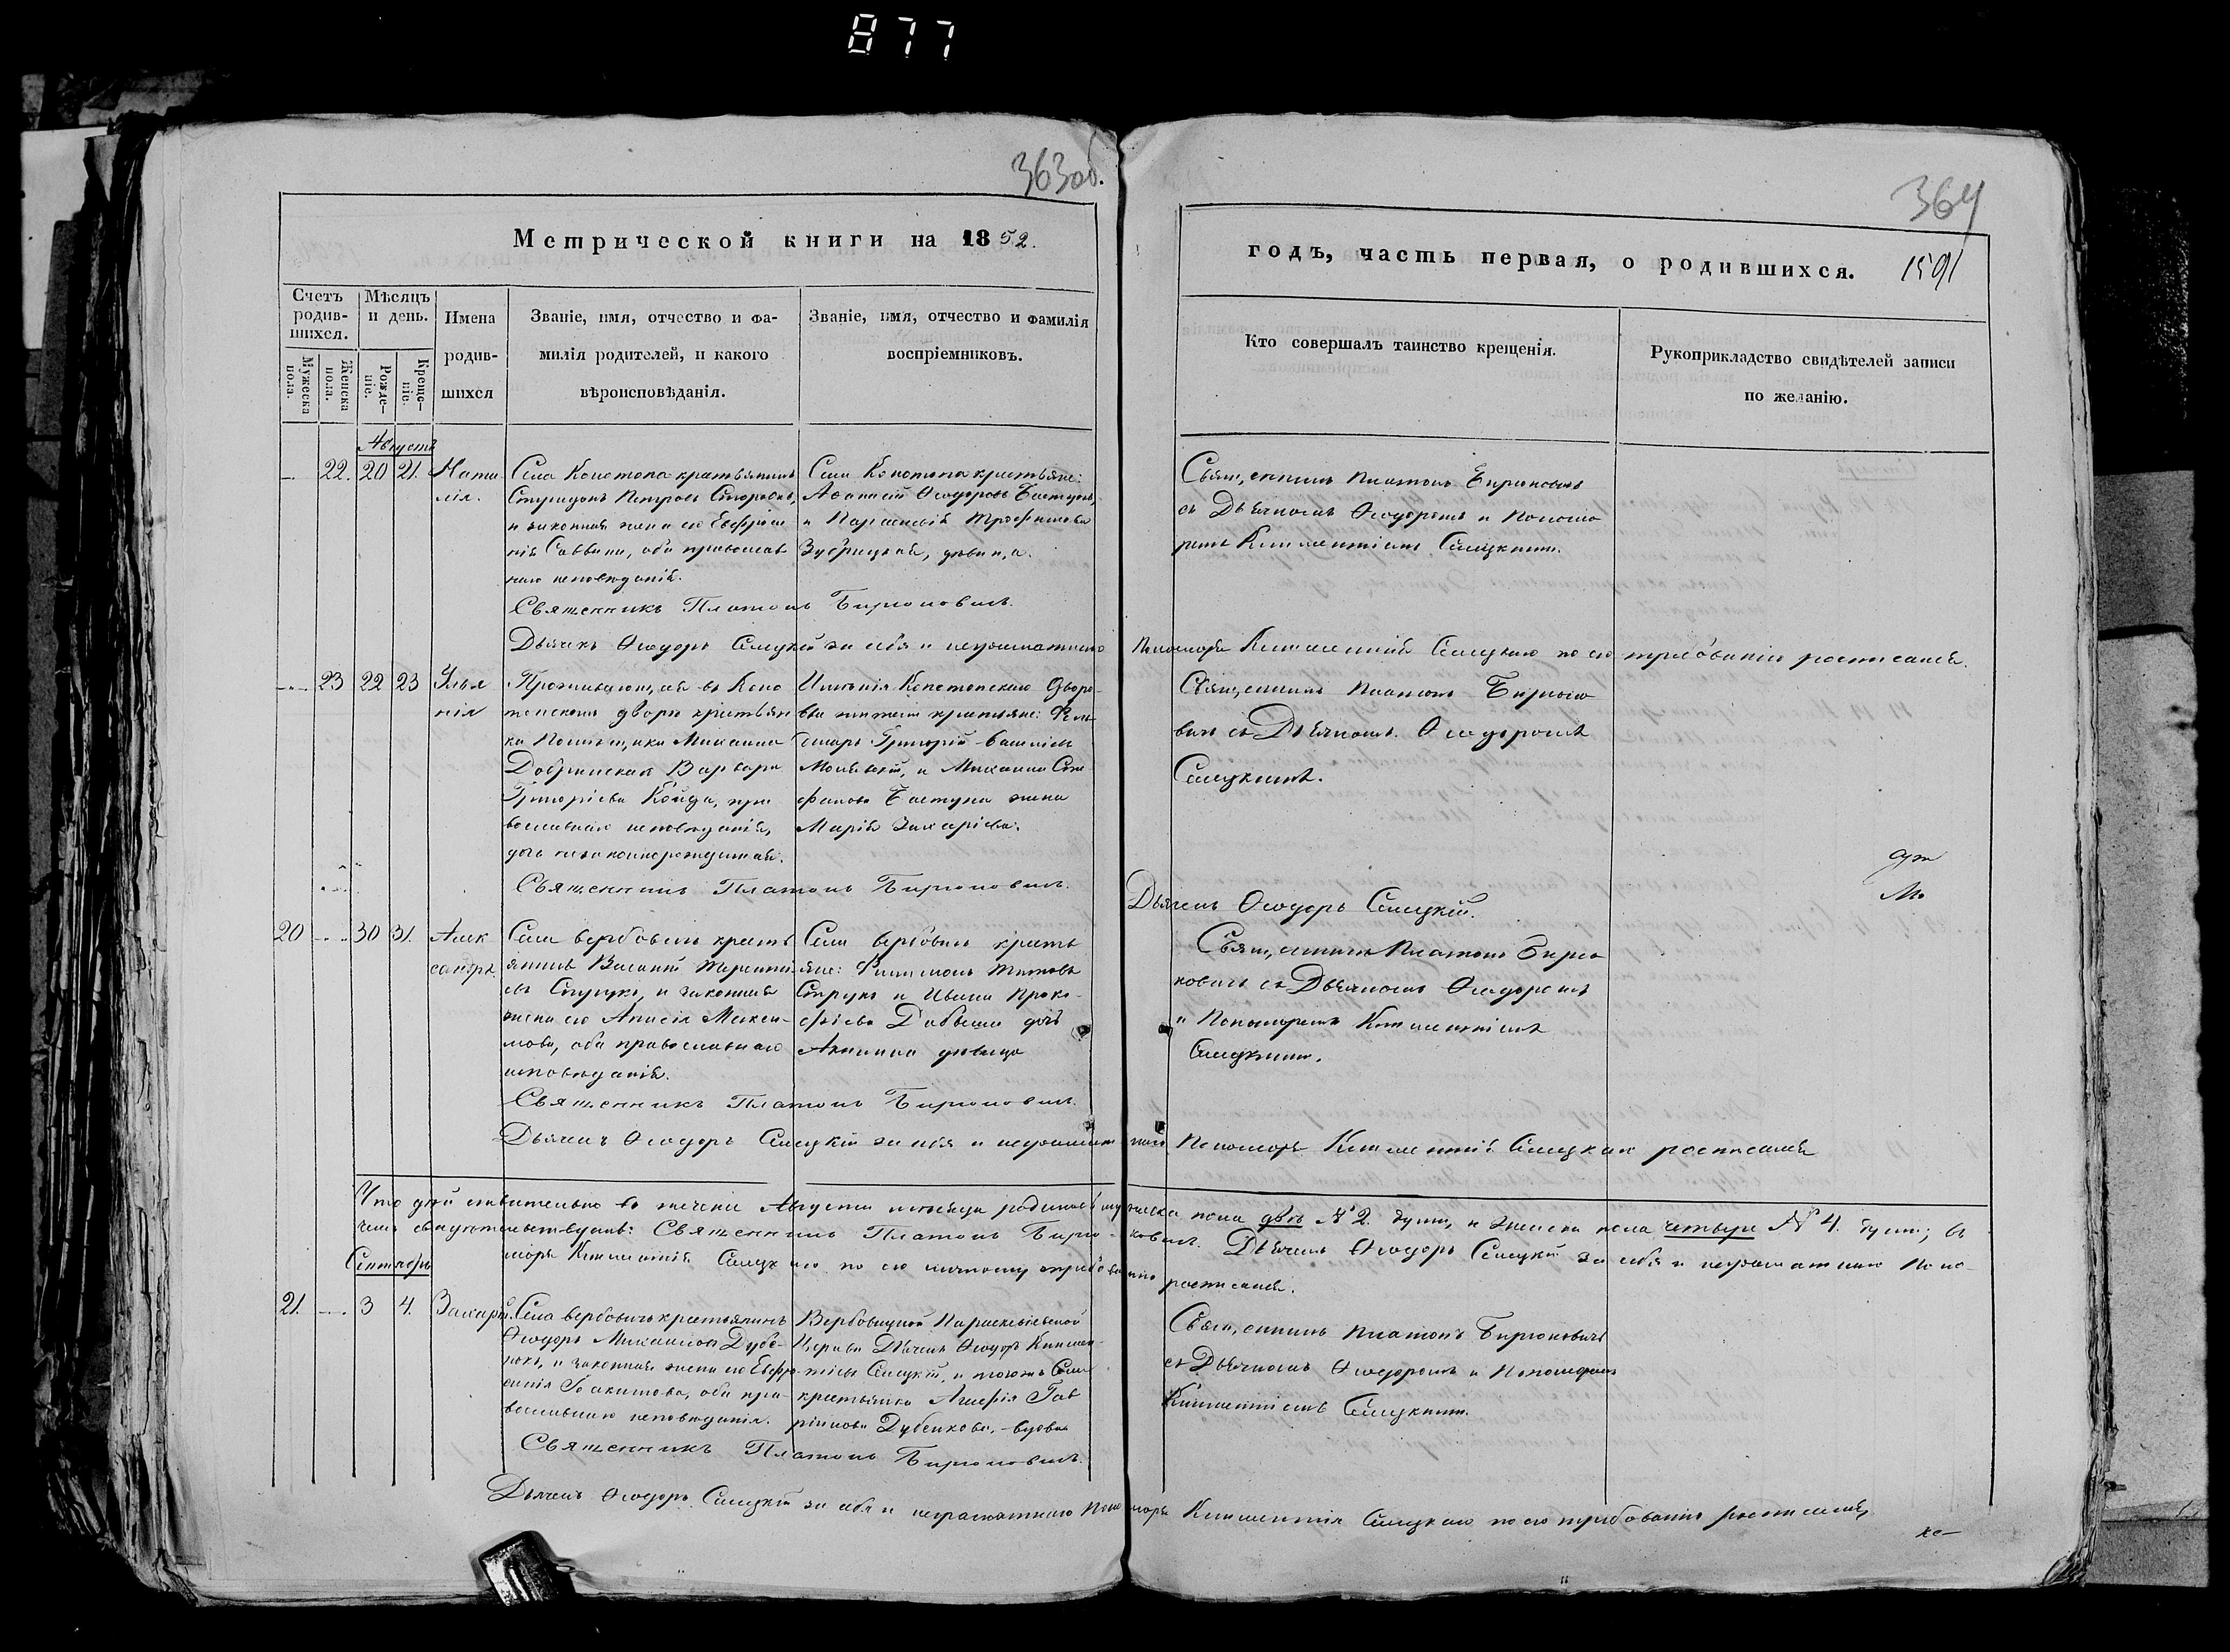 877
363 об.
364
Метрической книги на 1852.
годъ, часть первая, о родившихся. 1591
Счетъ родив-шихся.
Мужеска пола.
Женска пола.
Мѣсяцъ и день.
Рожде-ніе.
Креще-ніе.
Имена
родив-
шихся
Званіе, имя, отчество и фа-
милія родителей, и какого
вѣроисповѣданія.
Званіе, имя, отчество и фамилія
воспріемниковъ.
Кто совершалъ таинство крещенія.
Рукоприкладство свидѣтелей записи
по желанію.
Августъ
22. 20 21. Ната
лія.
Села Конотопа крестьянинъ
Петровъ
и законная жена его Евфроси
нія Саввина, оба православ
наго исповѣданія.
Села Конотопа крестьяне:
Аѳанасій Ѳеодоровъ
и Параскевія Трофимова
Зубрицкая, дѣвица.
Священникъ Платонъ Бирюковичъ
съ Дьячкомъ Ѳеодоромъ и Понома
ремъ Климентіемъ Слицкимъ.
Священникъ Платонъ Бирюковичъ.
Дьячекъ Ѳеодоръ Слицкій за себя и неграмотнаго Пономаря Климентія Слицкаго по его требованію росписался.
23 22 23 Улья
нія
Проживающая въ Коно
топскомъ дворѣ крестьян
ка Помѣщика Михаила
Добринская Варвара
Григорьева Койда, пра
вославнаго исповѣданія,
дочь незаконнорожденная.
Имѣнія Конотопскаго Дворо
ва крестьяне:
Григорій
и Михаила Сте
фанова жена
Марія Захаріева.
Священникъ Платонъ Бирюко
вичъ съ Дьячкомъ Ѳеодоромъ
Слицкимъ.
Священникъ Платонъ Бирюковичъ.
Дьячекъ Ѳеодоръ Слицкій.
20 30 31. Алек
сандръ.
Села Вербовичъ кресть
янинъ Василій Терентіе
въ и законная
жена его Анисія Макси
мова, оба православнаго
исповѣданія.
Села Вербовичъ кресть
яне: Филимонъ Титовъ
Струкъ и Ивана Проко
фіева дочь
Акилина дѣвица
Священникъ Платонъ Бирю
ковичъ съ Дьячкомъ Ѳеодоромъ
и Пономаремъ Климентіемъ
Слицкимъ.
Священникъ Платонъ Бирюковичъ.
Дьячекъ Ѳеодоръ Слицкій за себя и неграмотнаго Пономаря Климентія Слицкаго росписался
Что дѣйствительно въ теченіи Августа мѣсяца родилось мужеска пола двѣ № 2. души, и женска пола четыре № 4. души; въ
чемъ свидѣтельствуемъ: Священникъ Платонъ Бирюковичъ. Дьячекъ Ѳеодоръ Слицкій за себя и неграмотнаго Поно-
маря Климентія Слицкаго по его личному требованію росписался.
Сентябрь
21. 3 4. Захарій.
Села Вербовичъ крестьянинъ
Ѳеодоръ Михаиловъ Дубе-
нокъ, и законная жена его Евфро
синія Іоакимова, оба пра-
вославнаго исповѣданія.
Вербовицкой Параскевіевской
Церкви Дьячекъ Ѳеодоръ Климен-
тіевъ Слицкій, и тогожъ Села
крестьянка Агафія Гав
ріилова Дубенкова, вдова
Священникъ Платонъ Бирюковичъ
съ Дьячкомъ Ѳеодоромъ и Пономаремъ
Климентіемъ Слицкимъ.
Священникъ Платонъ Бирюковичъ.
Дьячекъ Ѳеодоръ Слицкій за себя и неграмотнаго Пономаря Климентія Слицкаго по его требованію росписался,